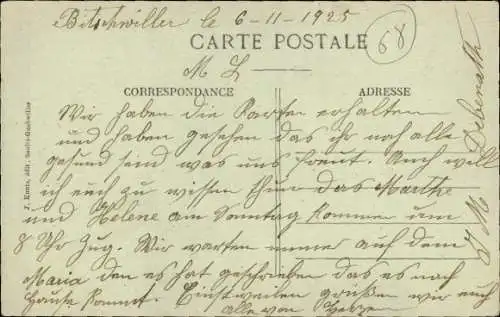 Bitschwiller le 6-11-1925
68
CARTE POSTALE
M L
CORRESPONDANCE
ADRESSE
Wir haben die Karten erhalten
und haben gesehen das ihr noch alle
gesund seind was uns freut. Auch will
ich euch zu wissen thun das Marthe
und Helene am Sonntag kommen um
8 Uhr Zug. Wir warten immer auf dem
Maria den es hat geschrieben das es nach
Hause kommt. Einstweilen grüßen wir euch
alle von Herzen